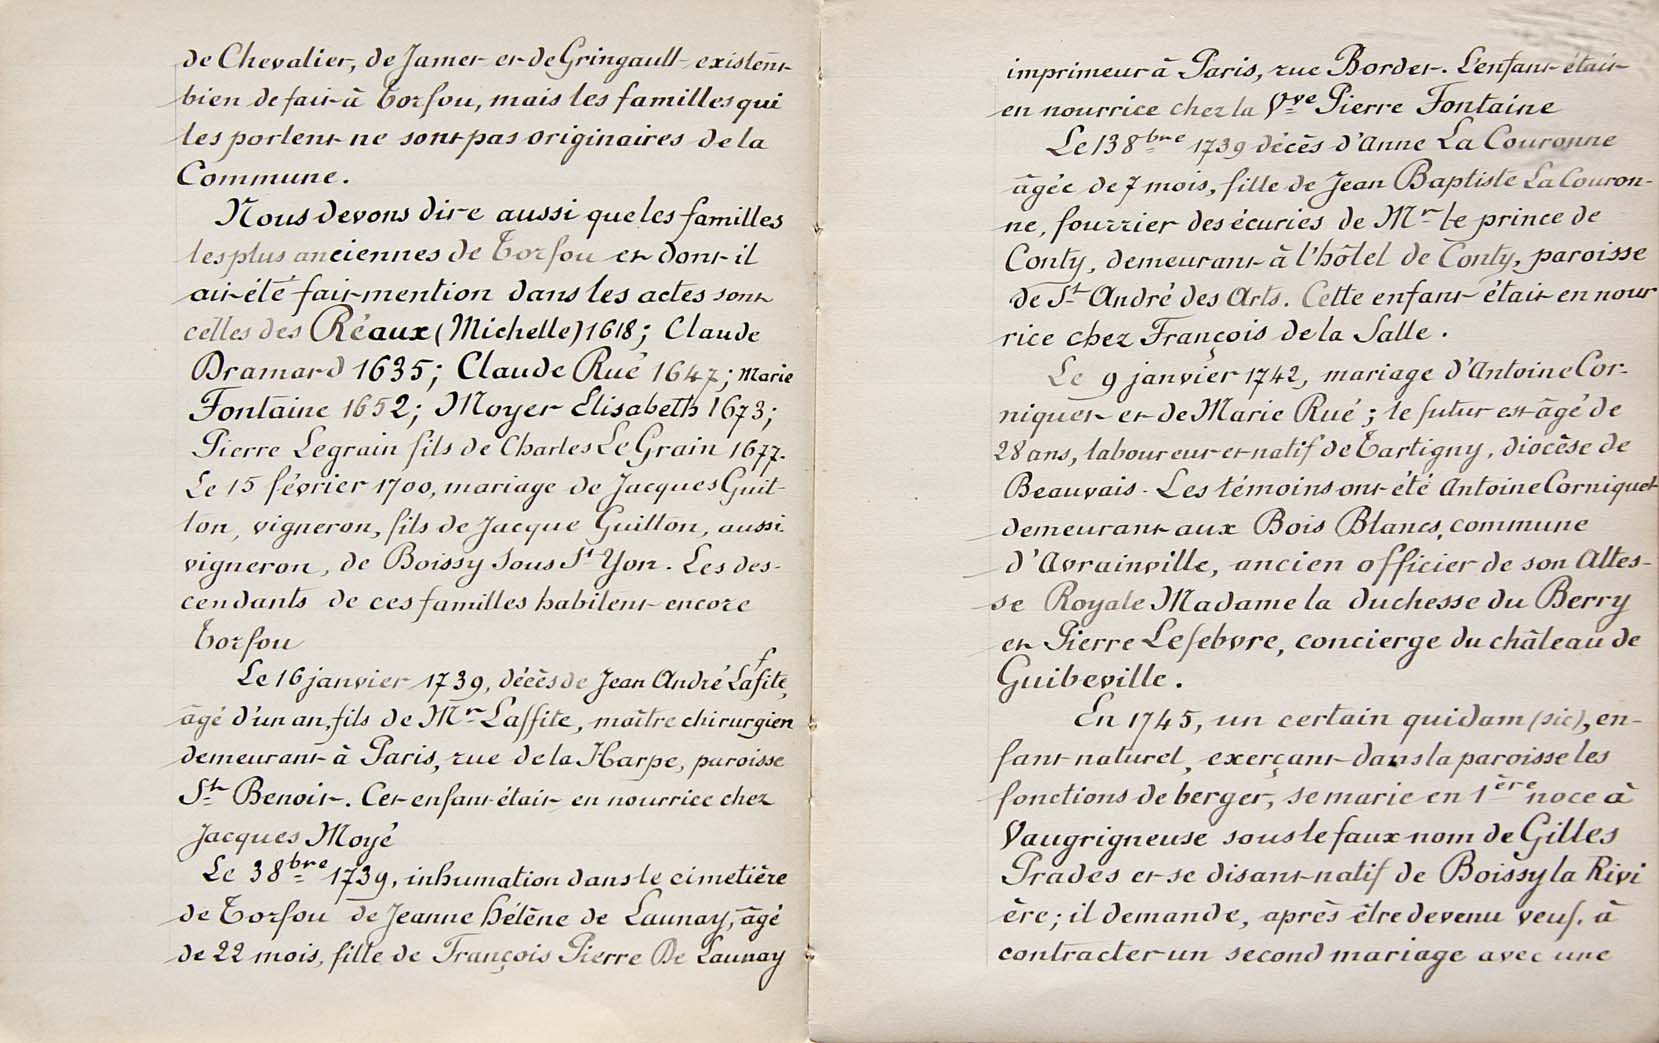 de Chevalier, de Jamet et de Gringault existent
bien de fait à Torfou, mais les familles qui
les portent ne sont pas originaires de la
Commune.
Nous devons dire aussi que les familles
les plus anciennes de Torfou et dont il
ait été fait mention dans les actes sont
celles des Réaux (Michelle) 1618; Claude
Dramard 1635; Claude Rué 1647; Marie
Fontaine 1652; Moyer Elisabeth 1673;
Pierre Legrain fils de Charles Le Grain 1677.
Le 15 février 1700, mariage de Jacques Guit-
ton, vigneron, fils de Jacque Guitton, aussi
vigneron, de Boissy sous St Yon. Les des-
cendants de ces familles habitent encore
Torfou
Le 16 janvier 1739, décès de Jean André Lafite,
f
âgé d'un an, fils de Mr Laffite, maître chirurgien
demeurant à Paris, rue de la Harpe, paroisse
St Benoit. Cet enfant était en nourrice chez
Jacques Moyé
Le 3 8bre 1739, inhumation dans le cimetière
de Torfou de Jeanne hélène de Launay, âgé
de 22 mois, fille de François Pierre De Launay
imprimeur à Paris, rue Bordet. L'enfant était
en nourrice chez la Vve Pierre Fontaine
Le 13 8bre 1739 décès d'Anne La Couronne
âgée de 7 mois, fille de Jean Baptiste La Couron-
ne, fourrier des écuries de Mr le prince de
Conty, demeurant à l'hôtel de Conty, paroisse
de St André des Arts. Cette enfant était en nour
rice chez François de la Salle.
Le 9 janvier 1742, mariage d'Antoine Cor-
niquet et de Marie Rué; le futur est âgé de
28 ans, laboureur et natif de Tartigny, diocèse de
Beauvais. Les témoins ont été Antoine Corniquet
demeurant aux Bois Blancs, commune
d'Avrainville, ancien officier de son Altes-
se Royale Madame la duchesse du Berry
et Pierre Lefebvre, concierge du château de
Guibeville.
En 1745, un certain quidam (sic), en-
fant naturel, exerçant dans la paroisse les
fonctions de berger, se marie en 1ère noce à
Vaugrigneuse sous le faux nom de Gilles
Prades et se disant natif de Boissy la Rivi
ère; il demande, après être devenu veuf, à
contracter un second mariage avec une